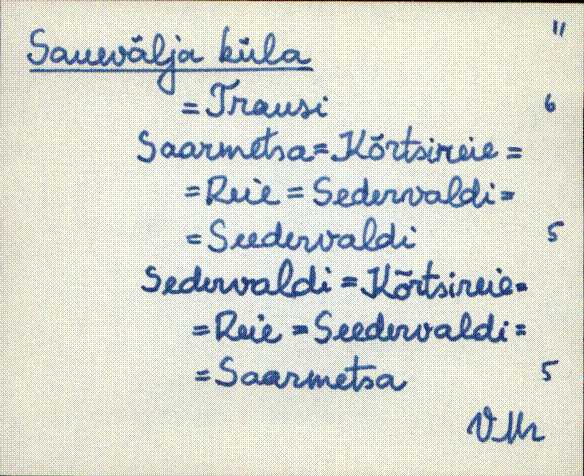 11
Sauevälja küla
=Trausi 6
Saarmetsa=Kõrtsireie=
=Reie=Sedervaldi=
=Seedervaldi 5
Sedervaldi=Kõrtsireie=
=Reie=Seedervaldi=
=Saarmetsa 5
VMr